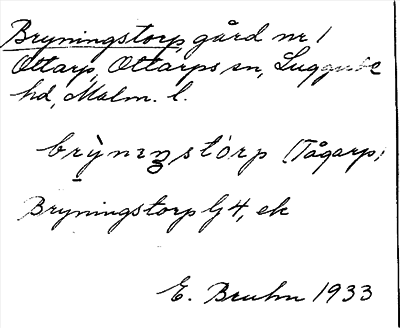 Bryningstorp, gård nr 1
Ottarp, Ottarps sn, Luggude
hd, Malm. l.
brỳnıŋstórp (Tågarp)
Bryningstorp G4, ek
E. Bruhn 1933